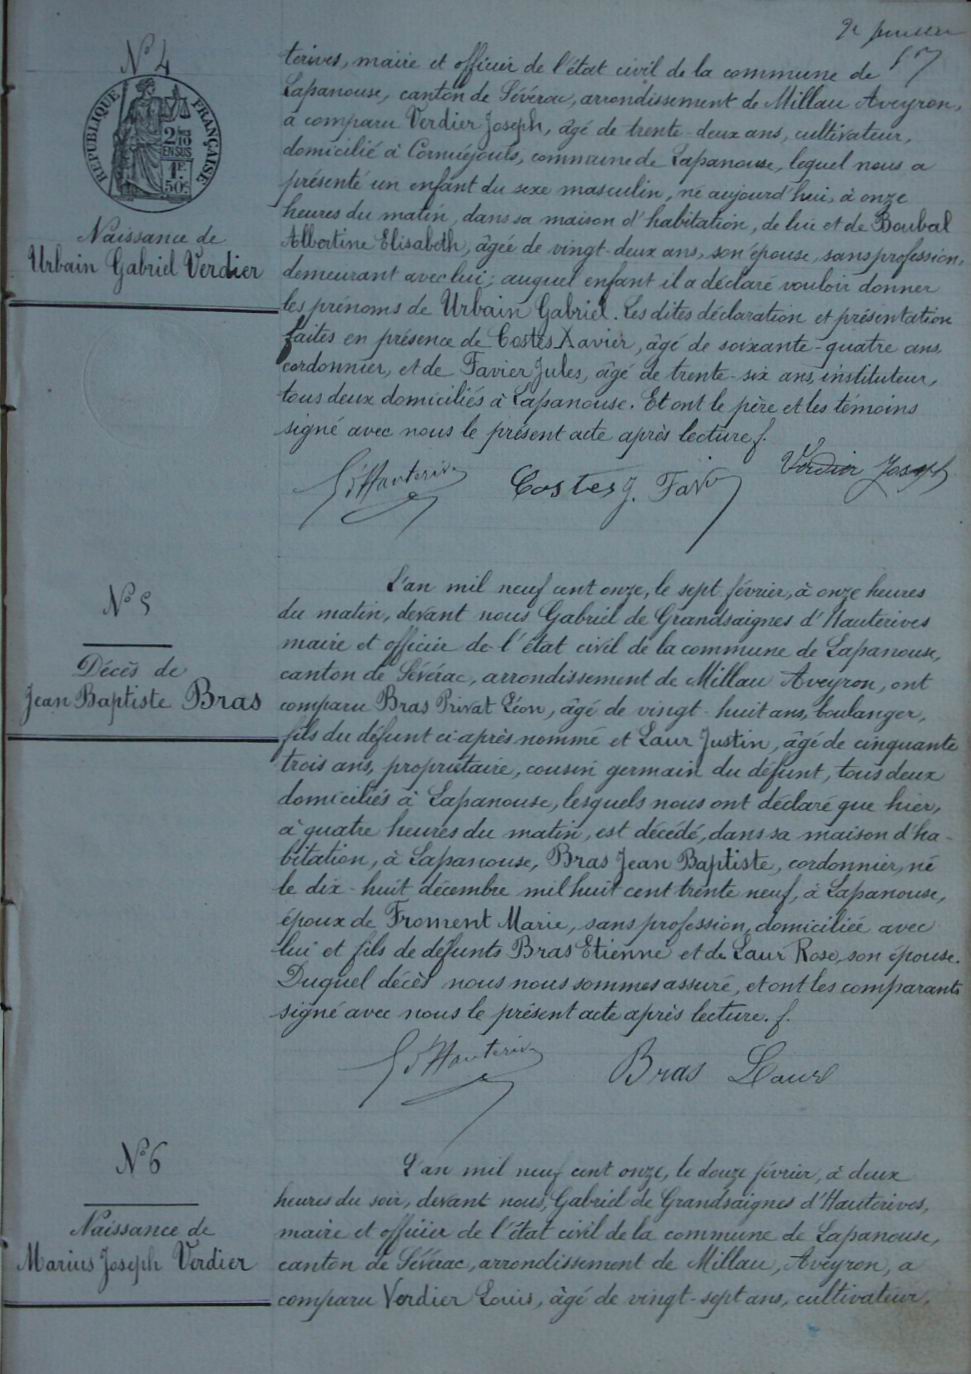 N° 4
RÉPUBLIQUE FRANÇAISE
2/10
EN SUS
1F.
50c.
Naissance de
Urbain Gabriel Verdier
terives, maire et officier de l'état civil de la commune de
Lapanouse, canton de Sévérac, arrondissement de Millau Aveyron,
a comparu Verdier Joseph, âgé de trente-deux ans, cultivateur,
domicilié à Cornuéjouls, commune de Lapanouse, lequel nous a
présenté un enfant du sexe masculin, né aujourd'hui, à onze
heures du matin, dans sa maison d'habitation, de lui et de Boubal
Albertine Elisabeth, âgée de vingt-deux ans, son épouse, sans profession,
demeurant avec lui; auquel enfant il a déclaré vouloir donner
les prénoms de Urbain Gabriel. Les dites déclaration et présentation
faites en présence de Costes Xavier, âgé de soixante-quatre ans,
cordonnier, et de Favier Jules, âgé de trente-six ans, instituteur,
tous deux domiciliés à Lapanouse. Et ont le père et les témoins
signé avec nous le présent acte après lecture.
G d'Hauterives Costes J. Favier Verdier Joseph
N° 5
Décès de
Jean Baptiste Bras
L'an mil neuf cent onze, le sept février, à onze heures
du matin, devant nous Gabriel de Grandsaignes d'Hauterives
maire et officier de l'état civil de la commune de Lapanouse,
canton de Sévérac, arrondissement de Millau Aveyron, ont
comparu Bras Privat Léon, âgé de vingt-huit ans, boulanger,
fils du défunt ci-après nommé et Laur Justin, âgé de cinquante
trois ans, propriétaire, cousin germain du défunt, tous deux
domiciliés à Lapanouse, lesquels nous ont déclaré que hier,
à quatre heures du matin, est décédé, dans sa maison d'ha-
bitation, à Lapanouse, Bras Jean Baptiste, cordonnier, né
le dix-huit décembre mil huit cent trente neuf, à Lapanouse,
époux de Froment Marie, sans profession, domiciliée avec
lui et fils de défunts Bras Etienne et de Laur Rose, son épouse.
Duquel décès nous nous sommes assuré, et ont les comparants
signé avec nous le présent acte après lecture.
G d'Hauterives Bras Laur
N° 6
Naissance de
Marius Joseph Verdier
L'an mil neuf cent onze, le douze février, à deux
heures du soir, devant nous, Gabriel de Grandsaignes d'Hauterives,
maire et officier de l'état civil de la commune de Lapanouse,
canton de Sévérac, arrondissement de Millau, Aveyron, a
comparu Verdier Louis, âgé de vingt-sept ans, cultivateur,